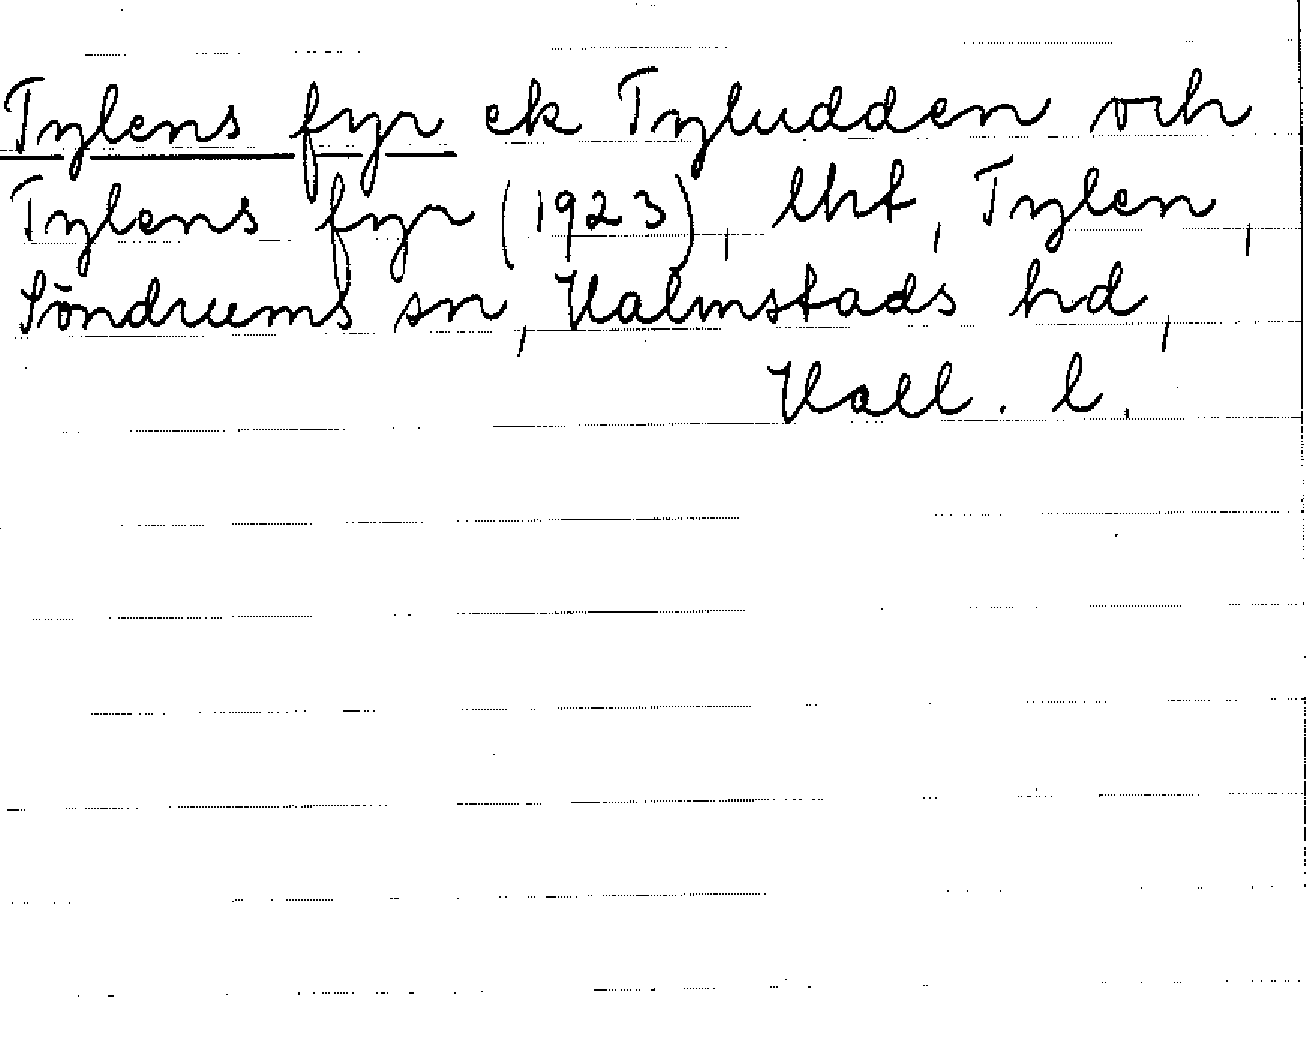 Tylens fyr ek Tyludden och
Tylens fyr (1923), lht, Tylen,
Söndrums sn, Halmstads hd,
Hall. l.